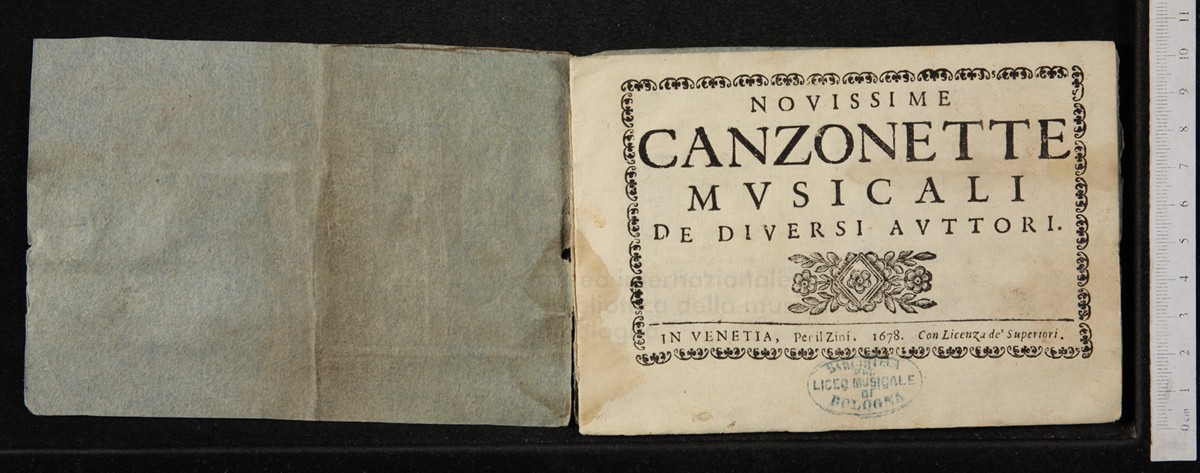 NOVISSIME
CANZONETTE
MVSICALI
DE DIVERSI AVTTORI.
IN VENETIA, Per il Zini. 1678. Con Licenza de' Superiori.
LICEO MUSICALE
DI
BOLOGNA
internazionale
della
0 cm 1 2 3 4 5 6 7 8 9 10 11